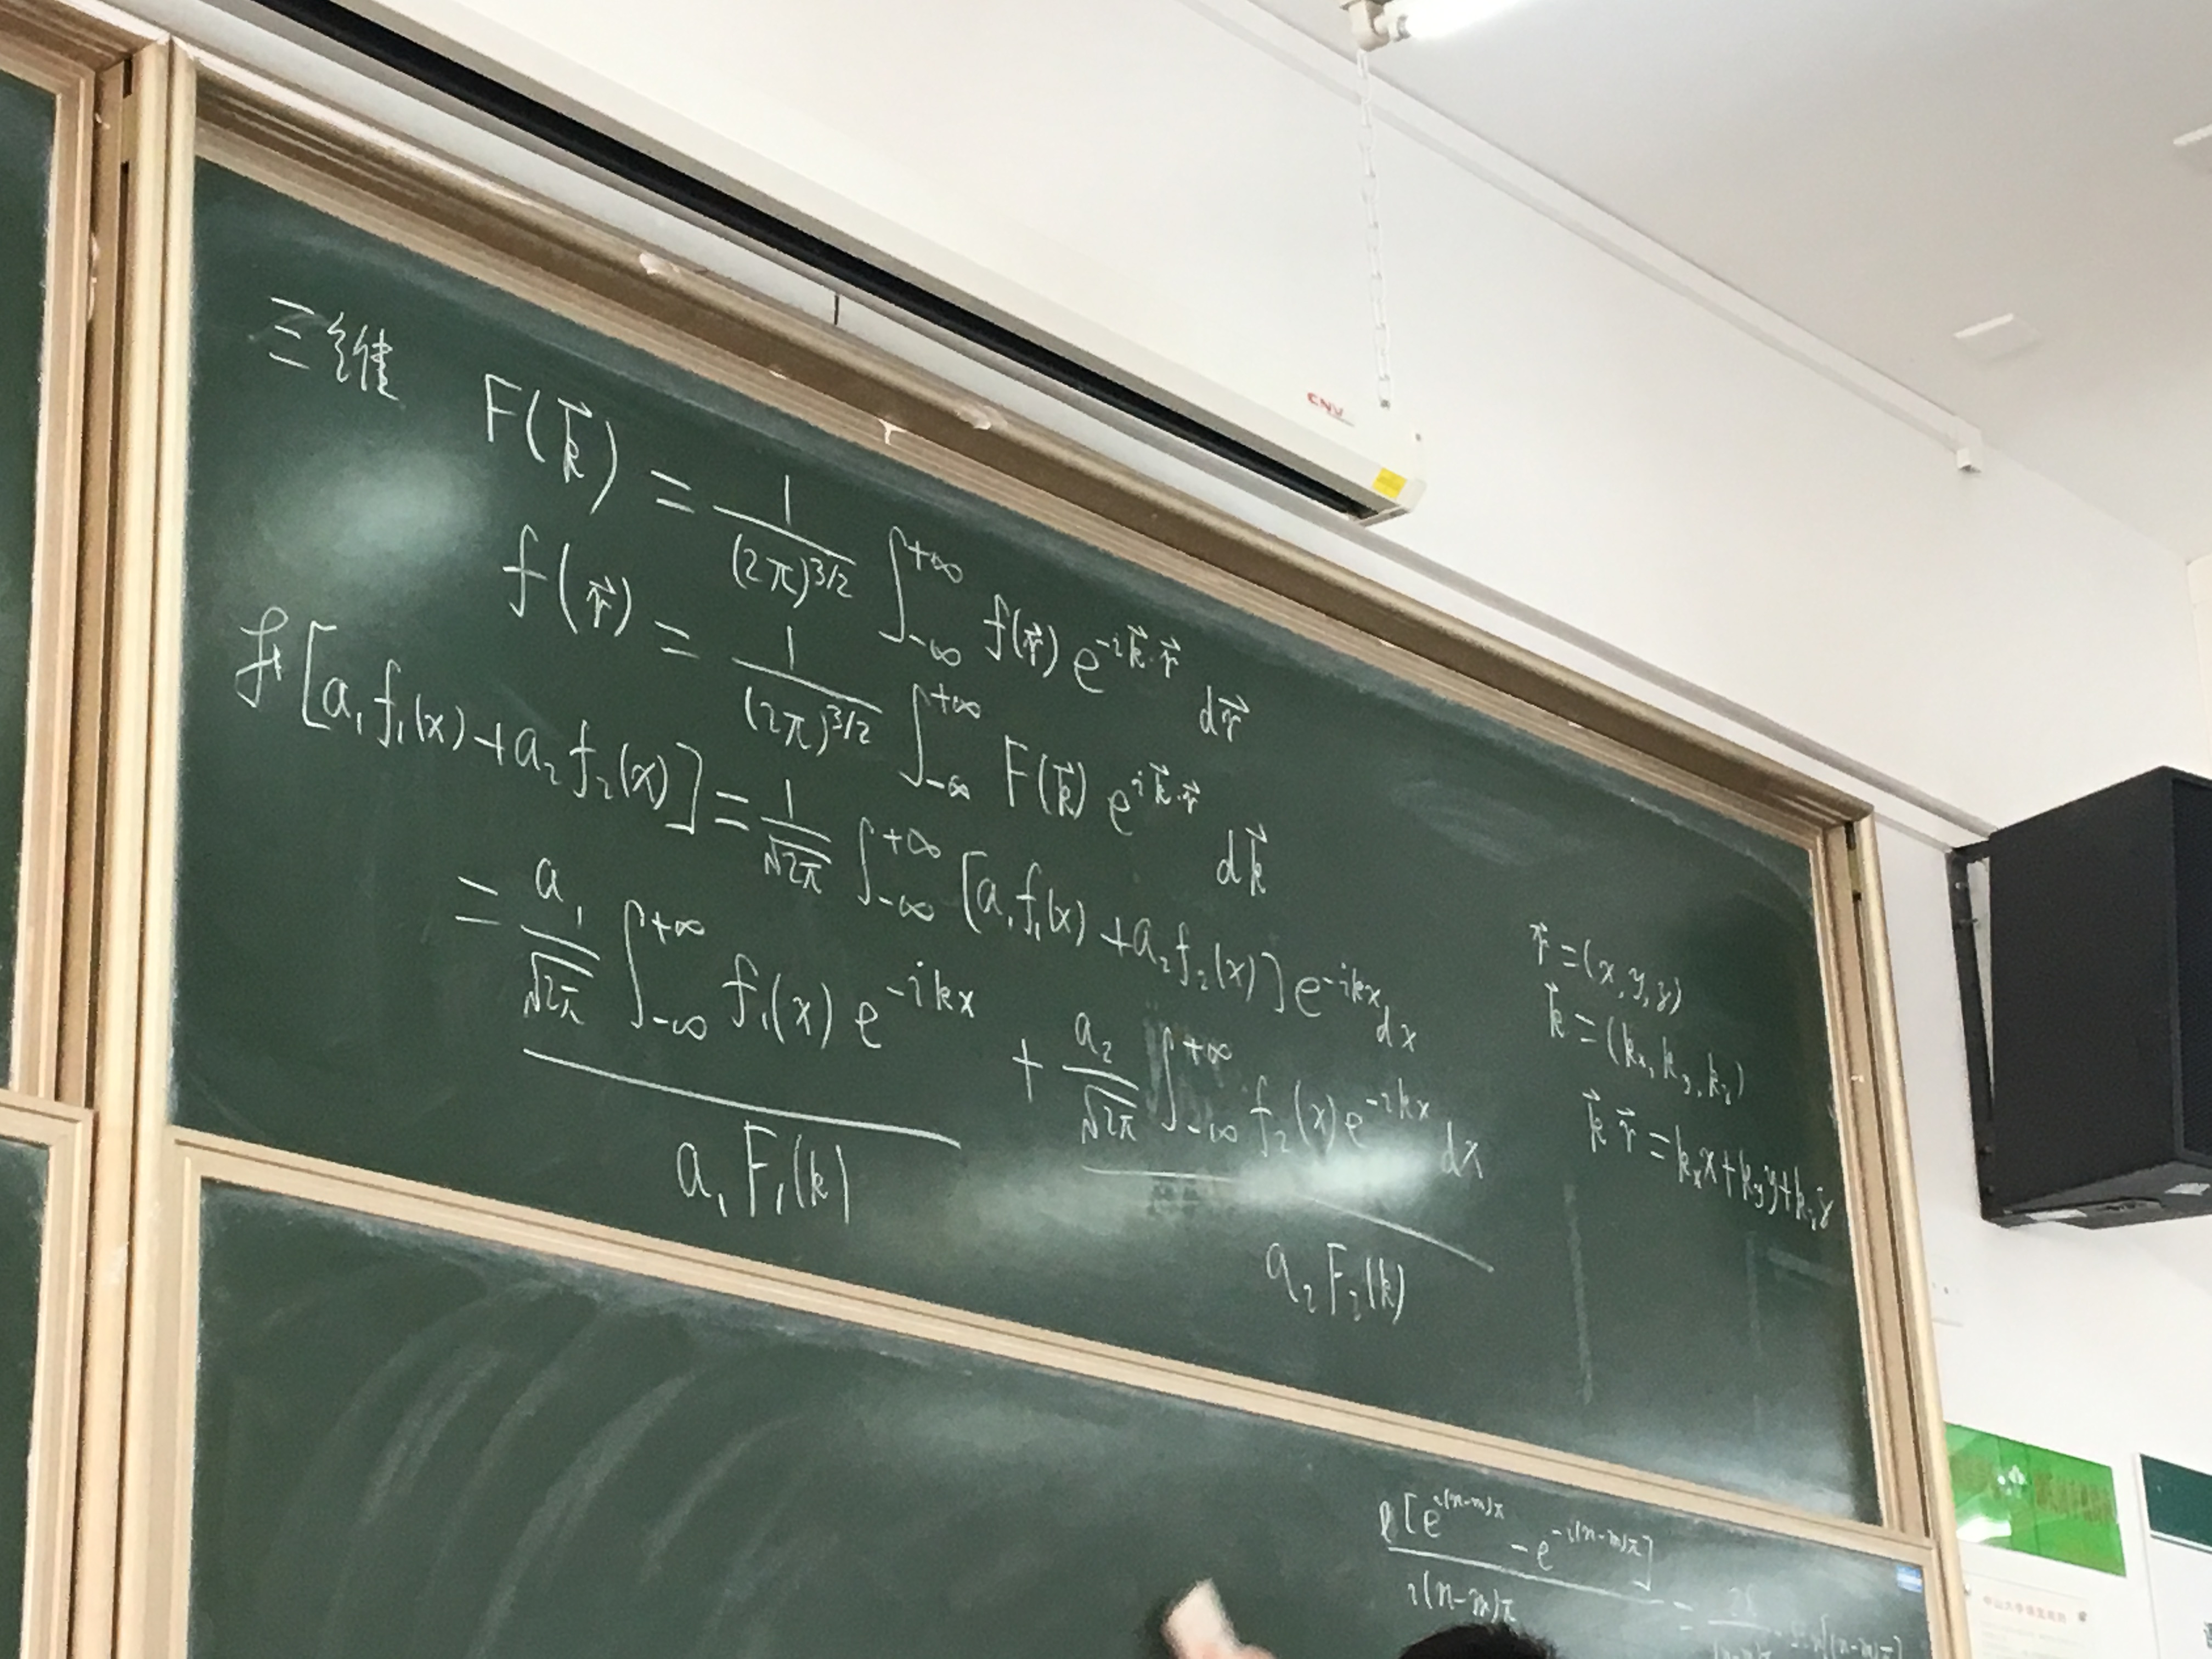 CNV
三维 F(k⃗) = 1/(2π)^{3/2} ∫_{-∞}^{+∞} f(r⃗) e^{-ik⃗·r⃗} dr⃗
f(r⃗) = 1/(2π)^{3/2} ∫_{-∞}^{+∞} F(k⃗) e^{ik⃗·r⃗} dk⃗
ℱ[a₁f₁(x)+a₂f₂(x)] = 1/√2π ∫_{-∞}^{+∞} [a₁f₁(x)+a₂f₂(x)] e^{-ikx} dx
= a₁/√2π ∫_{-∞}^{+∞} f₁(x) e^{-ikx} + a₂/√2π ∫_{-∞}^{+∞} f₂(x) e^{-ikx} dx
a₁F₁(k)
a₂F₂(k)
r⃗ = (x, y, z)
k⃗ = (kₓ, k_y, k_z)
k⃗·r⃗ = kₓx + k_y y + k_z z
l[e^{i(n-m)π} - e^{-i(n-m)π}] / i(n-m)π =